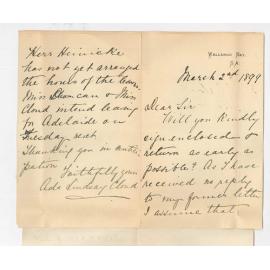 Wellesley Rd.
S.A.
March 2nd 1899
Dear Sir
Will you kindly
sign enclosed &
return as early as
possible? As I have
received no reply
to my former letter
I assume that
Herr Heinicke
has not yet arranged
the hours of the lessons
Miss Duncan & Miss
Cloud intend leaving
for Adelaide on
Tuesday next
Thanking you in anti-
cipation
Faithfully yours
Ada Lindsay Cloud